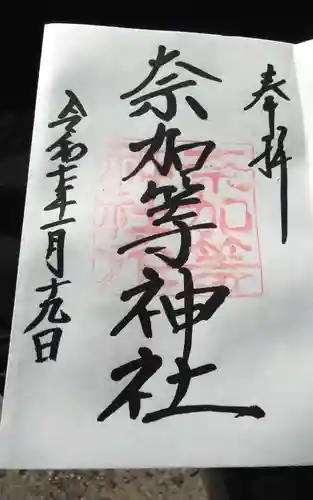 奉拝
奈加等神社
令和七年一月十九日